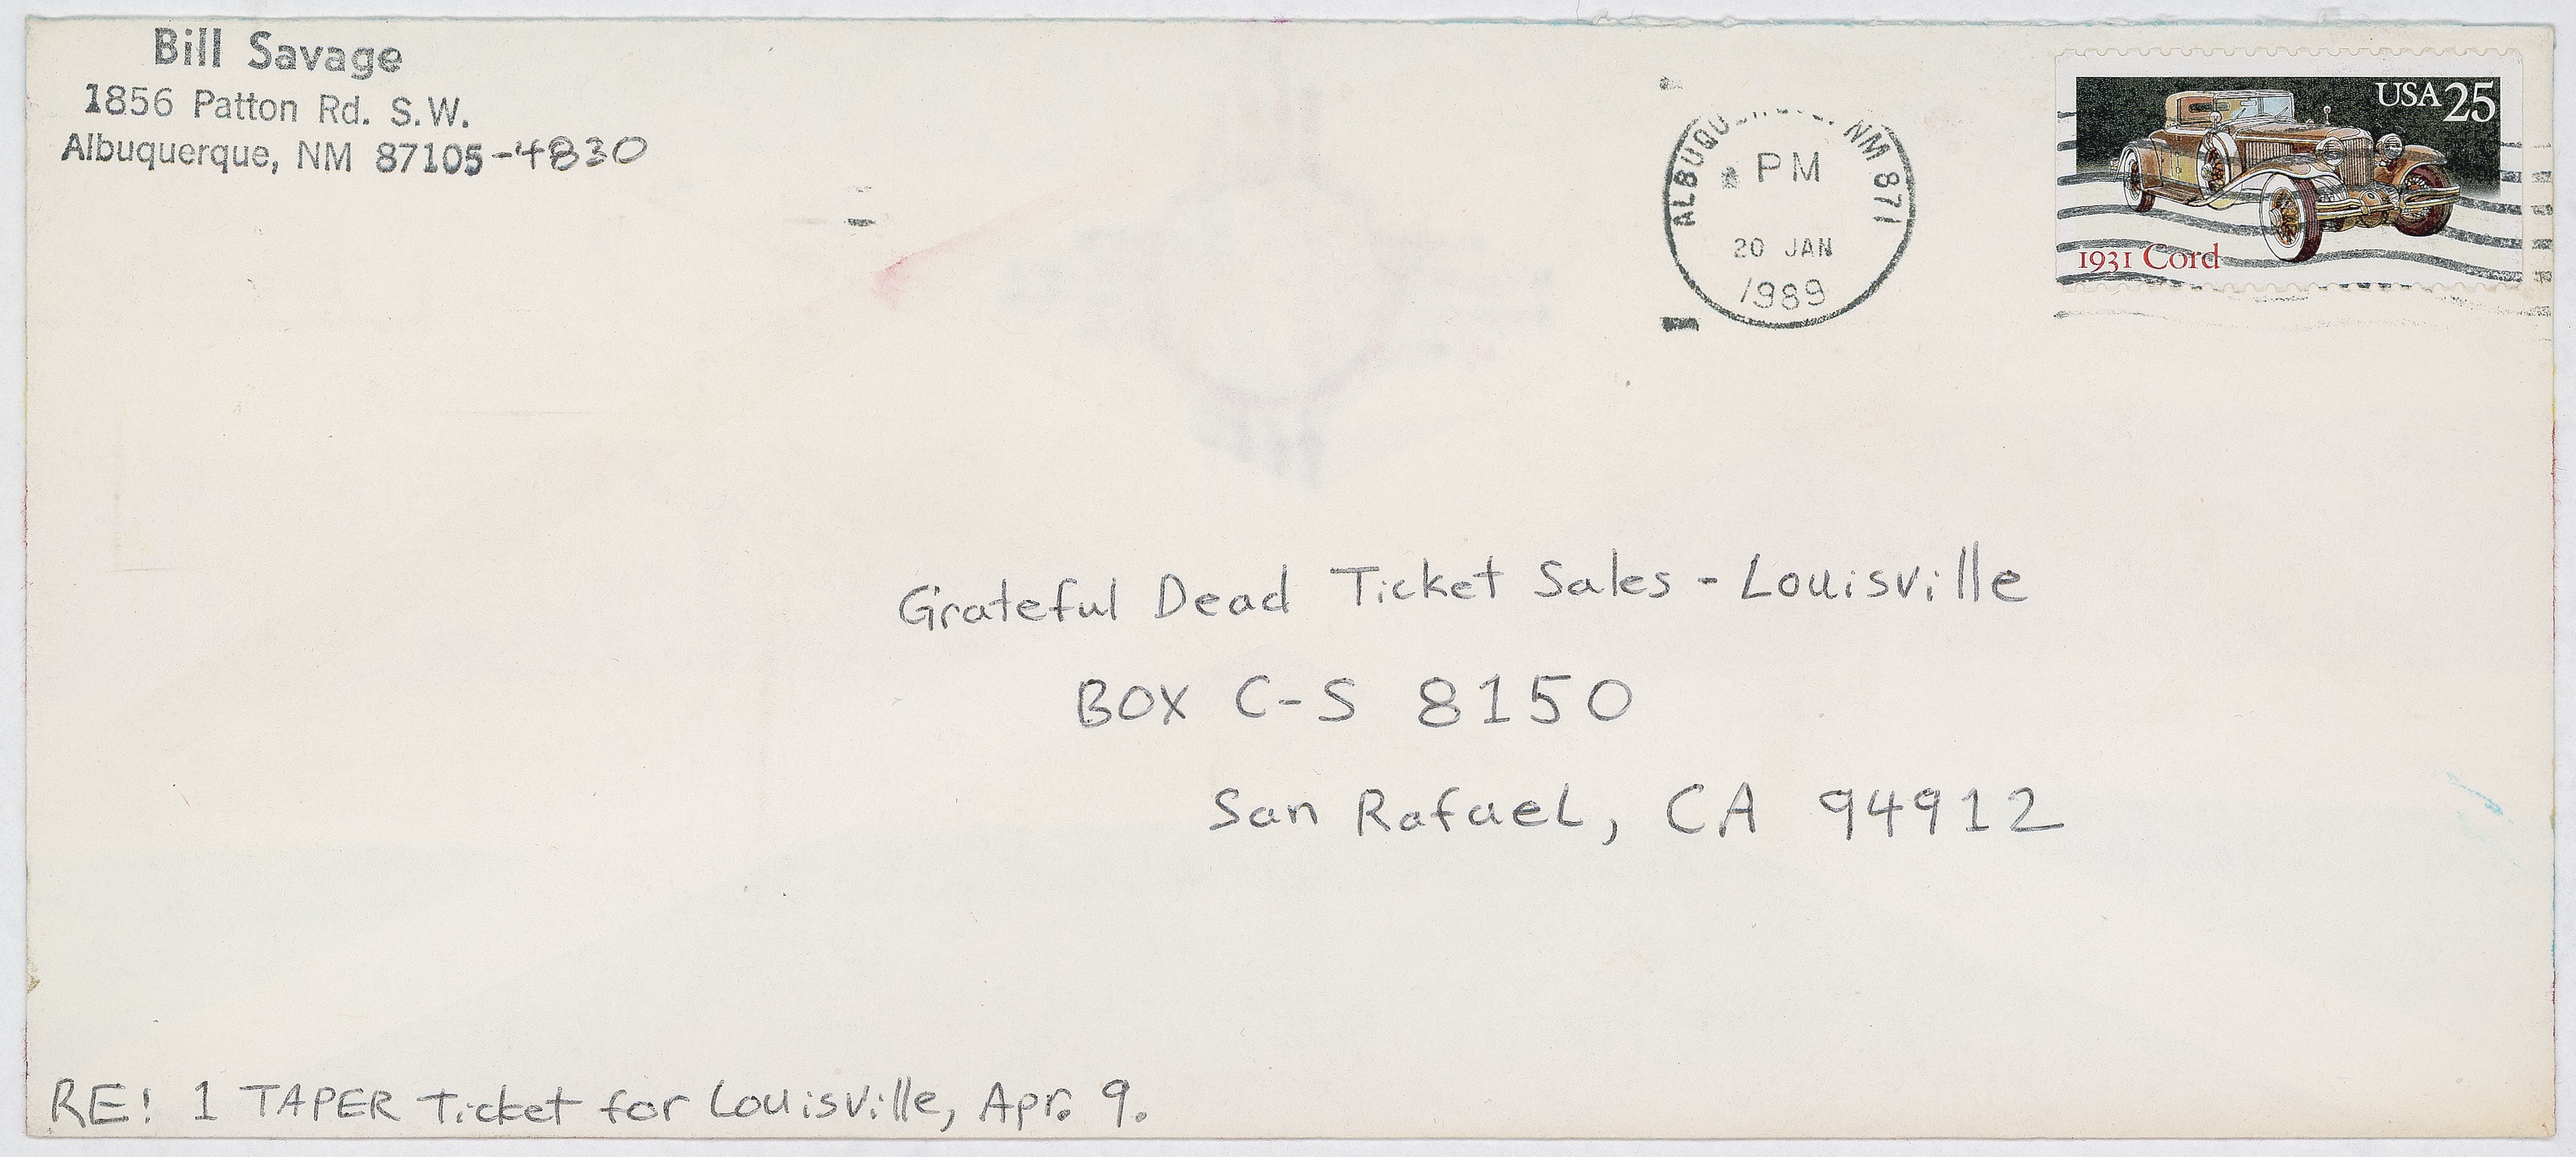 Bill Savage
1856 Patton Rd. S.W.
Albuquerque, NM 87105-4830
NM 871
PM
20 JAN
1989
USA 25
1931 Cord
Grateful Dead Ticket Sales - Louisville
BOX C-S 8150
San Rafael, CA 94912
RE: 1 TAPER Ticket for Louisville, Apr. 9.